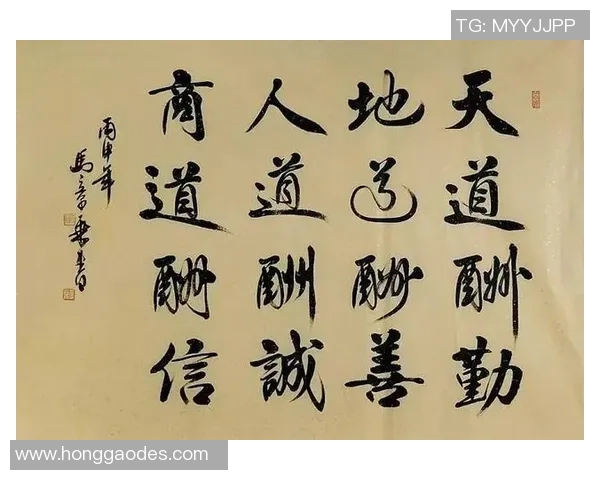 TG: MYYJJPP
天道酬勤
地道酬善
人道酬誠
商道酬信
丙申年
www.honggaodes.com